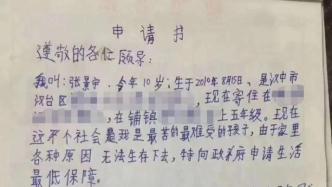 申请书
遵敬的各位领导:
我叫:张景宁,今年10岁;生于2010年8月15日、是汉中市
汉台区,现在寄住在
在铺镇上五年级。现在
这个社会是我是最苦的最难受的孩子,由于家里
各种原因 无法生存下去,特向政府申请生活
最低保障。